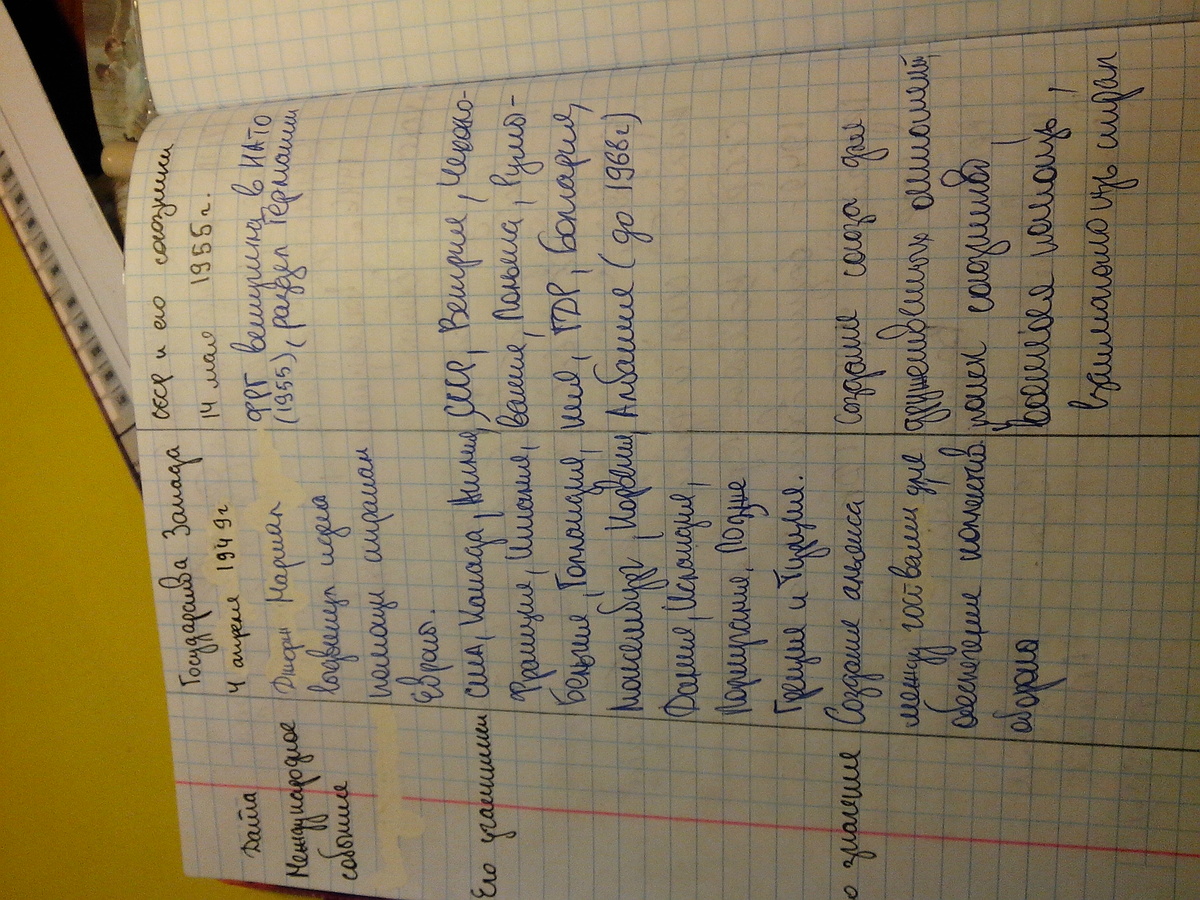 Государства Запада
СССР и его союзники
Дата
4 апреля 1949г
14 мая 1955г.
Международное
событие
Джордж Маршал
выдвинул идею
помощи странам
Европы.
ФРГ вступила в НАТО
(1955), раздел Германии
Его участники
США, Канада, Англия,
Франция, Италия,
Бельгия, Голландия,
Люксембург, Норвегия,
Дания, Исландия,
Португалия, Позднее
Греция и Турция.
СССР, Венгрия, Чехосло-
вакия, Польша, Румы-
ния, ГДР, Болгария,
Албания (до 1968г)
о значение
Создание альянса
между государствами для
обеспечение коллектив.
оборона
Создание союза для
дружественных отношений,
поиск союзников
военная помощь,
взаимопомощь стран